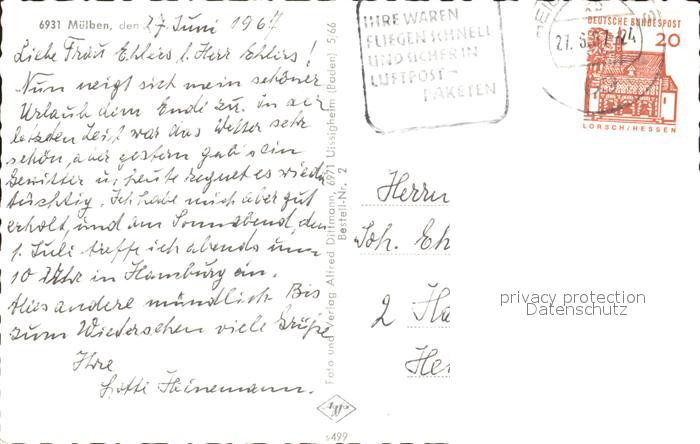 6931 Mülben, den 27 Juni 1967
Liebe Frau Ehlers l. Herr Ehlers!
Nun neigt sich mein schöner
Urlaub dem Ende zu. In der
letzten Zeit war das Wetter sehr
schön, aber gestern gab's ein
Gewitter u. heute regnet es wieder
tüchtig. Ich habe mich aber gut
erholt, und am Sonnabend, den
1. Juli treffe ich abends um
10 Uhr in Hamburg ein.
Alles andere mündlich. Bis
zum Wiedersehen viele Grüße
Ihre
Lotti Heinemann.
Foto und Verlag Alfred Dittmann, 6971 Uissigheim (Baden) 5/66
Bestell-Nr. 2
Agfa
s499
IHRE WAREN
FLIEGEN SCHNELL
UND SICHER IN
LUFTPOST-
PAKETEN
27.6.67-24
DEUTSCHE BUNDESPOST
20
LORSCH/HESSEN
Herrn
Joh. Eh
2 Ha
He
privacy protection
Datenschutz